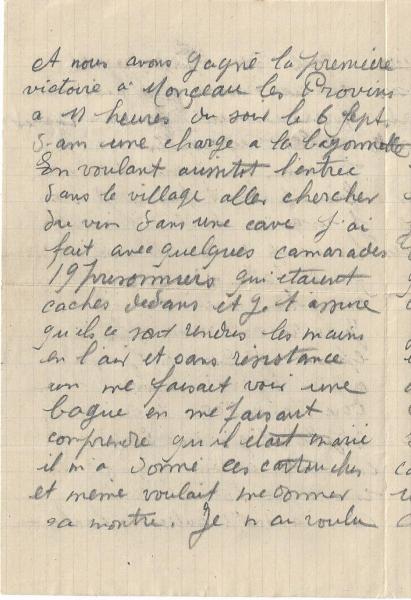 et nous avons gagné la première
victoire à Monceau les Provins
a 11 heures du soir le 6 Sept
dans une charge a la bayonnette
En voulant aussitot l'entree
dans le village aller chercher
du vin dans une cave j'ai
fait avec quelques camarades
19 prisonniers qui etaient
caches dedans et je t assure
qu'ils ce sont rendus les mains
en l'air et sans résistance
un me faisait voir une
bague en me faisant
comprendre qu'il était marié
il m a donné ces cartouches
et même voulait me donner
sa montre. Je n ai voulu